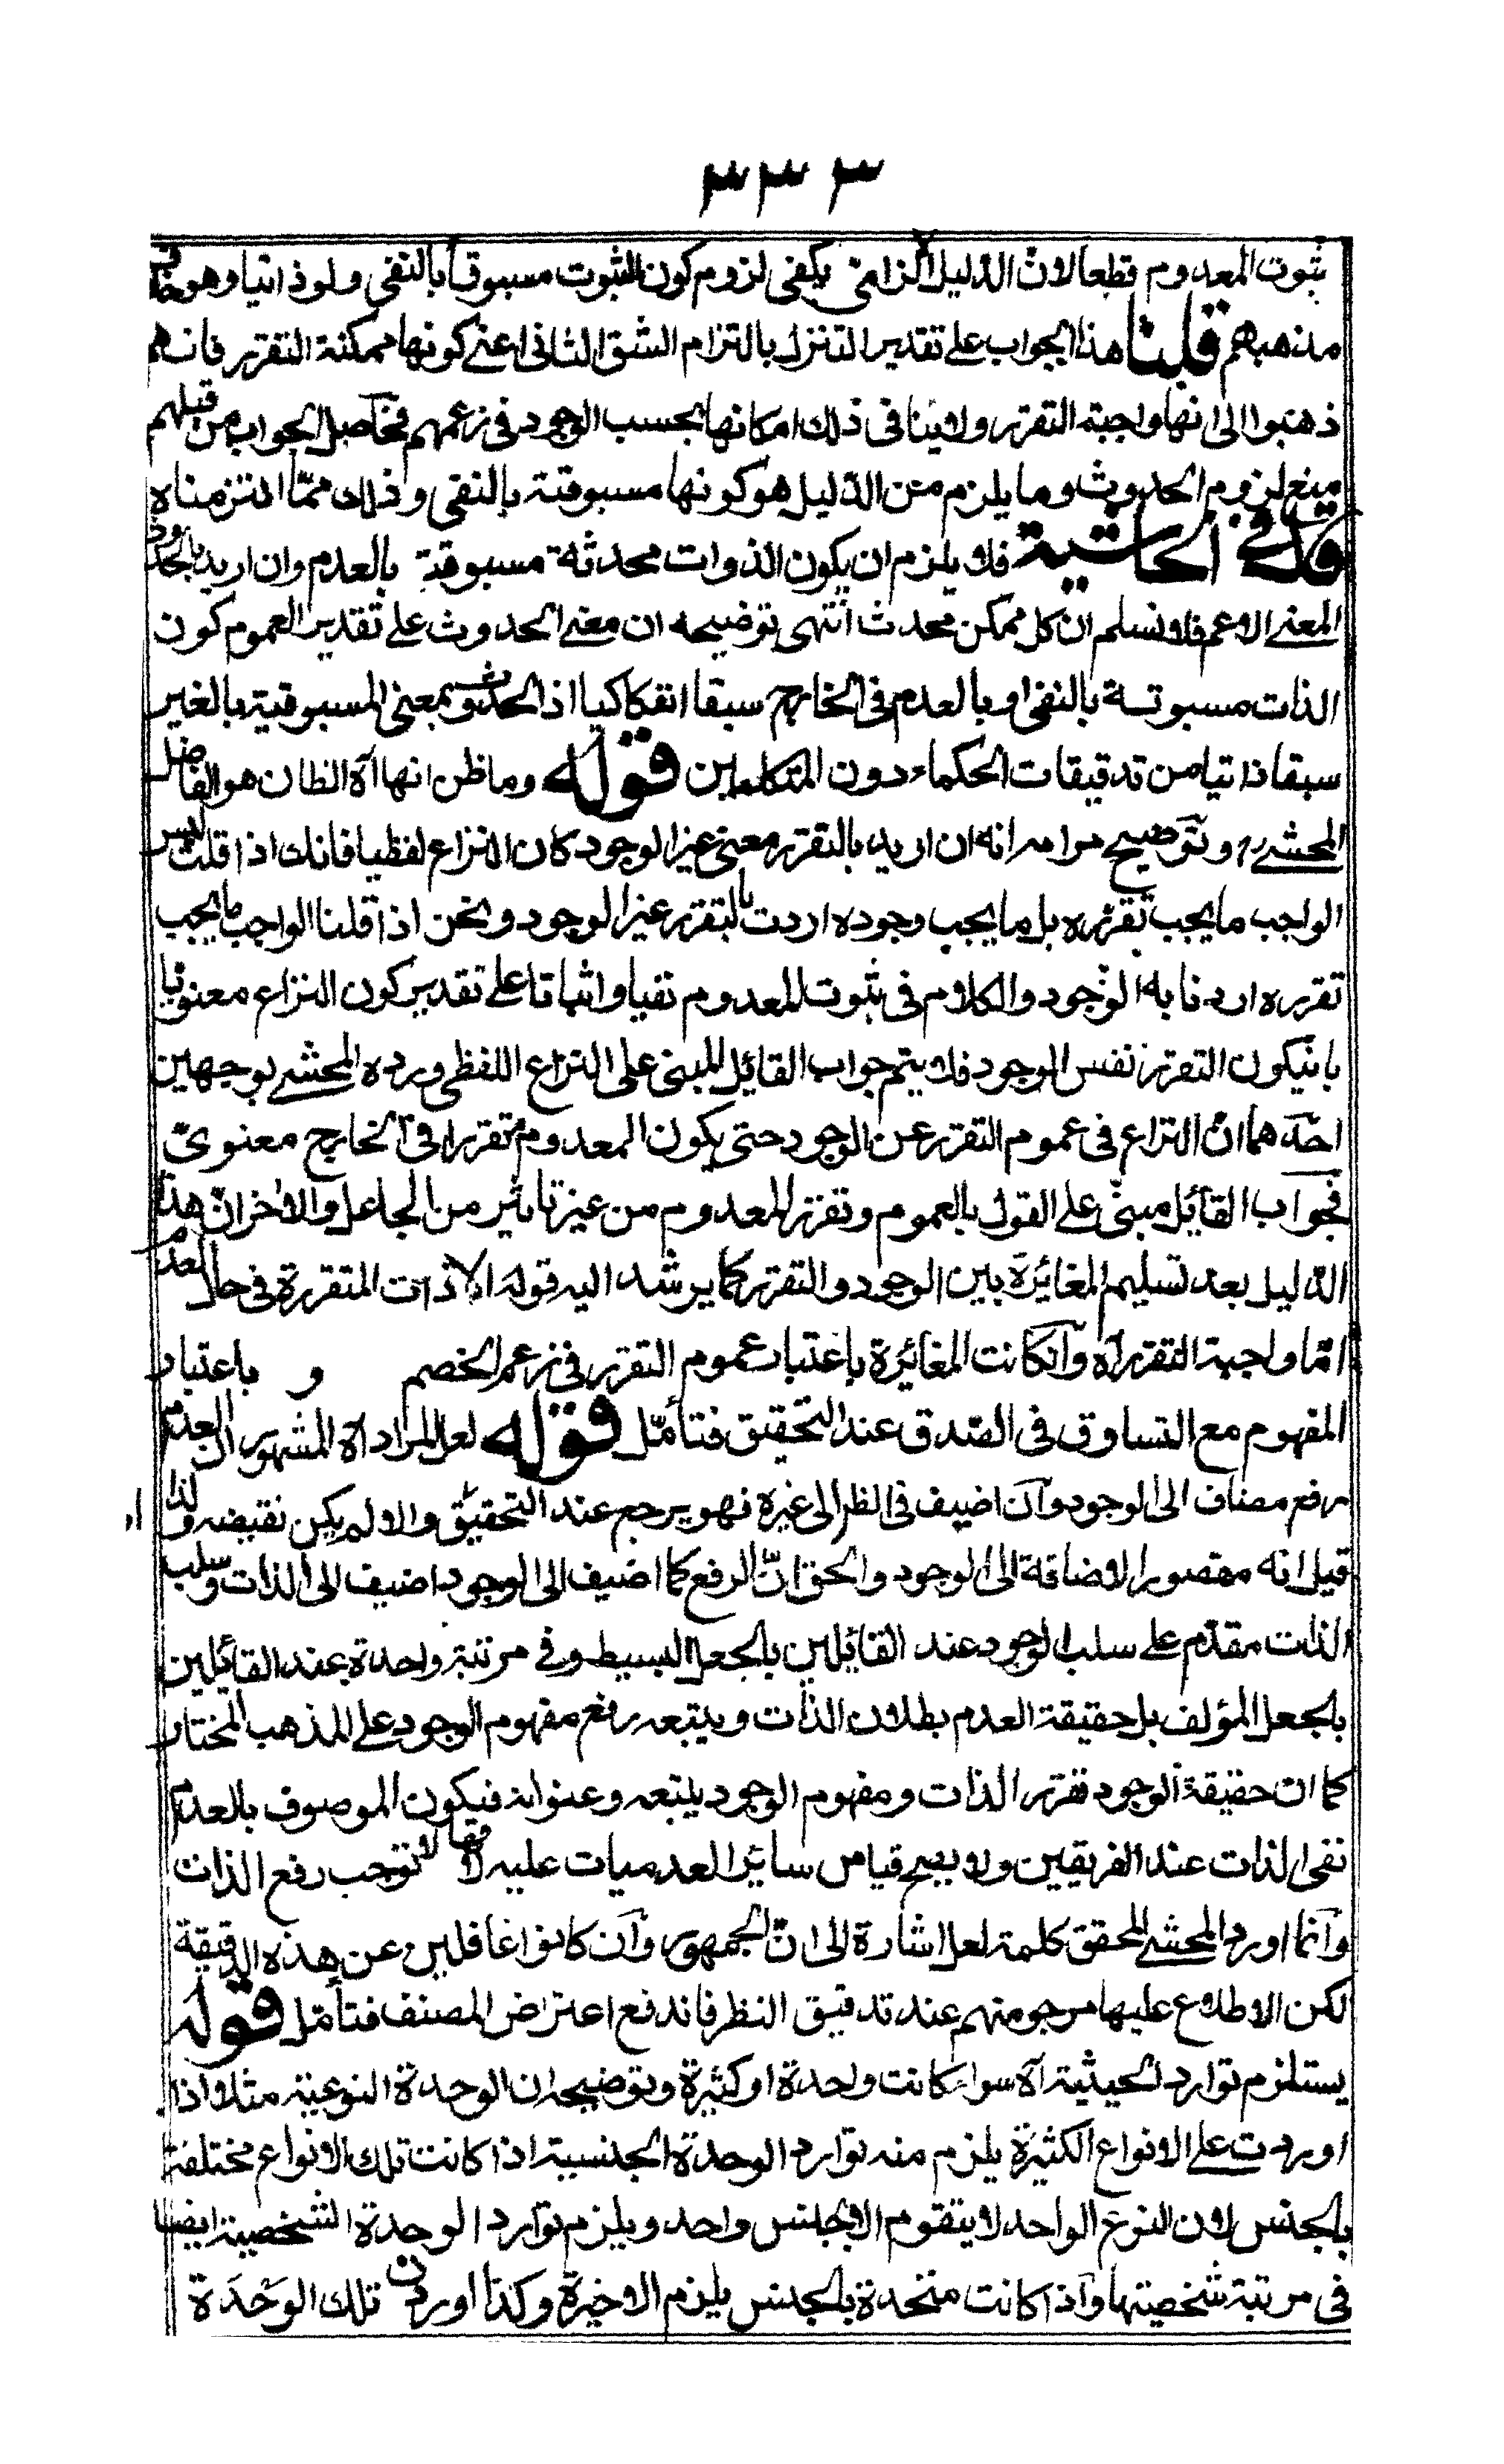 ٣٣٣
ثبوت المعدوم قطعا لان الدليل الزامى يكفى لزوم كون الثبوت مسبوقا بالنفى ولو ذاتيا وهو خلاف
مذهبهم قلنا هذا الجواب على تقدير التنزل بالتزام الشق الثانى اعنى كونها ممكنة التقرر فانهم
ذهبوا الى انها واجبة التقرر ولا ينافى ذلك امكانها بحسب الوجود فى زعمهم فحاصل الجواب من قبلهم
منع لزوم الحدوث وما يلزم من الدليل هو كونها مسبوقة بالنفى وذلك مما التزمناه
قوله فى الحاشية فلا يلزم ان يكون الذوات محدثة مسبوقة بالعدم وان اريد بالحدوث
المعنى الاعم فلا نسلم ان كل ممكن محدث انتهى توضيحه ان معنى الحدوث على تقدير العموم كون
الذات مسبوقة بالنفى او بالعدم فى الخارج سبقا انفكاكيا اذ الحدوث بمعنى المسبوقية بالغير
سبقا ذاتيا من تدقيقات الحكماء دون المتكلمين قوله وما ظن انها آه الظان هو الفاضل
المحشى وتوضيح مرامه انه ان اريد بالتقرر معنى غير الوجود كان النزاع لفظيا فانك اذا قلت ليس
الواجب ما يجب تقرره بل ما يجب وجوده اردت بالتقرر غير الوجود ونحن اذا قلنا الواجب ما يجب
تقرره اردنا به الوجود والكلام فى ثبوت المعدوم نفيا واثباتا على تقدير كون النزاع معنويا
بان يكون التقرر نفس الوجود فلا يتم جواب القائل المبنى على النزاع اللفظى ورده المحشى بوجهين
احدهما ان النزاع فى عموم التقرر عن الوجود حتى يكون المعدوم متقررا فى الخارج معنوى
فجواب القائل مبنى على القول بالعموم وتقرر المعدوم من غير تاثير من الجاعل والاخر ان هذا
الدليل بعد تسليم المغائرة بين الوجود والتقرر كما يرشد اليه قوله الذات المتقررة فى حال العدم
اما واجبة التقرر آه وان كانت المغائرة باعتبار عموم التقرر فى زعم الخصم و باعتبار
المفهوم مع التساوق فى الصدق عند التحقيق فتأمل قوله لعل المراد آه المشهور ان العدم
رفع مضاف الى الوجود وان اضيف فى الظ الى غيره فهو يرجع عند التحقيق والا لم يكن نقيضه ولذا
قيل انه مقصور الاضافة الى الوجود والحق ان الرفع كما اضيف الى الوجود اضيف الى الذات وسلب
الذات مقدم على سلب الوجود عند القائلين بالجعل البسيط وفى مرتبة واحدة عند القائلين
بالجعل المؤلف بل حقيقة العدم بطلان الذات ويتبعه رفع مفهوم الوجود على المذهب المختار
كما ان حقيقة الوجود تقرر الذات ومفهوم الوجود يتبعه وعنوانه فيكون الموصوف بالعدم
نفى الذات عند الفريقين ولا يصح قياس سائر العدميات عليه لانها لا توجب رفع الذات
وانما اورد المحشى المحقق كلمة لعل اشارة الى ان الجمهور وان كانوا غافلين عن هذه الدقيقة
لكن الاطلاع عليها مرجو منهم عند تدقيق النظر فاندفع اعتراض المصنف فتأمل قوله
يستلزم توارد الحيثية آه سواء كانت واحدة او كثيرة وتوضيحه ان الوحدة النوعية مثلا اذا
اوردت على الانواع الكثيرة يلزم منه توارد الوحدة الجنسية اذا كانت تلك الانواع مختلفة
بالجنس لان النوع الواحد لا يتقوم الا بجنس واحد ويلزم توارد الوحدة الشخصية ايضا
فى مرتبة شخصيتها واذا كانت متحدة بالجنس يلزم الاخيرة وكذا اوردن تلك الوحدة